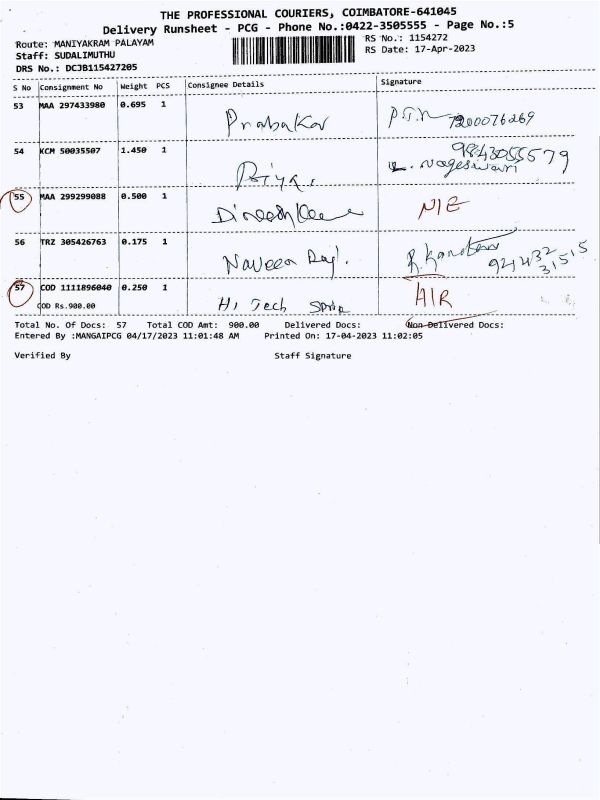 THE PROFESSIONAL COURIERS, COIMBATORE-641045
Delivery Runsheet - PCG - Phone No.:0422-3505555 - Page No.:5
Route: MANIYAKRAM PALAYAM
RS No.: 1154272
Staff: SUDALIMUTHU
RS Date: 17-Apr-2023
DRS No.: DCJB115427205
S No Consignment No Weight PCS Consignee Details Signature
53 MAA 297433980 0.695 1 Prabakar 7200076269
54 KCM 50035507 1.450 1 Priya. 9843055579
Nageswari
55 MAA 299299088 0.500 1 NIE
56 TRZ 305426763 0.175 1 Naveen Raj.
57 COD 1111896040 0.250 1 Hi Tech AIR
COD Rs.900.00
Total No. Of Docs: 57 Total COD Amt: 900.00 Delivered Docs: Non Delivered Docs:
Entered By :MANGAIPCG 04/17/2023 11:01:48 AM Printed On: 17-04-2023 11:02:05
Verified By Staff Signature